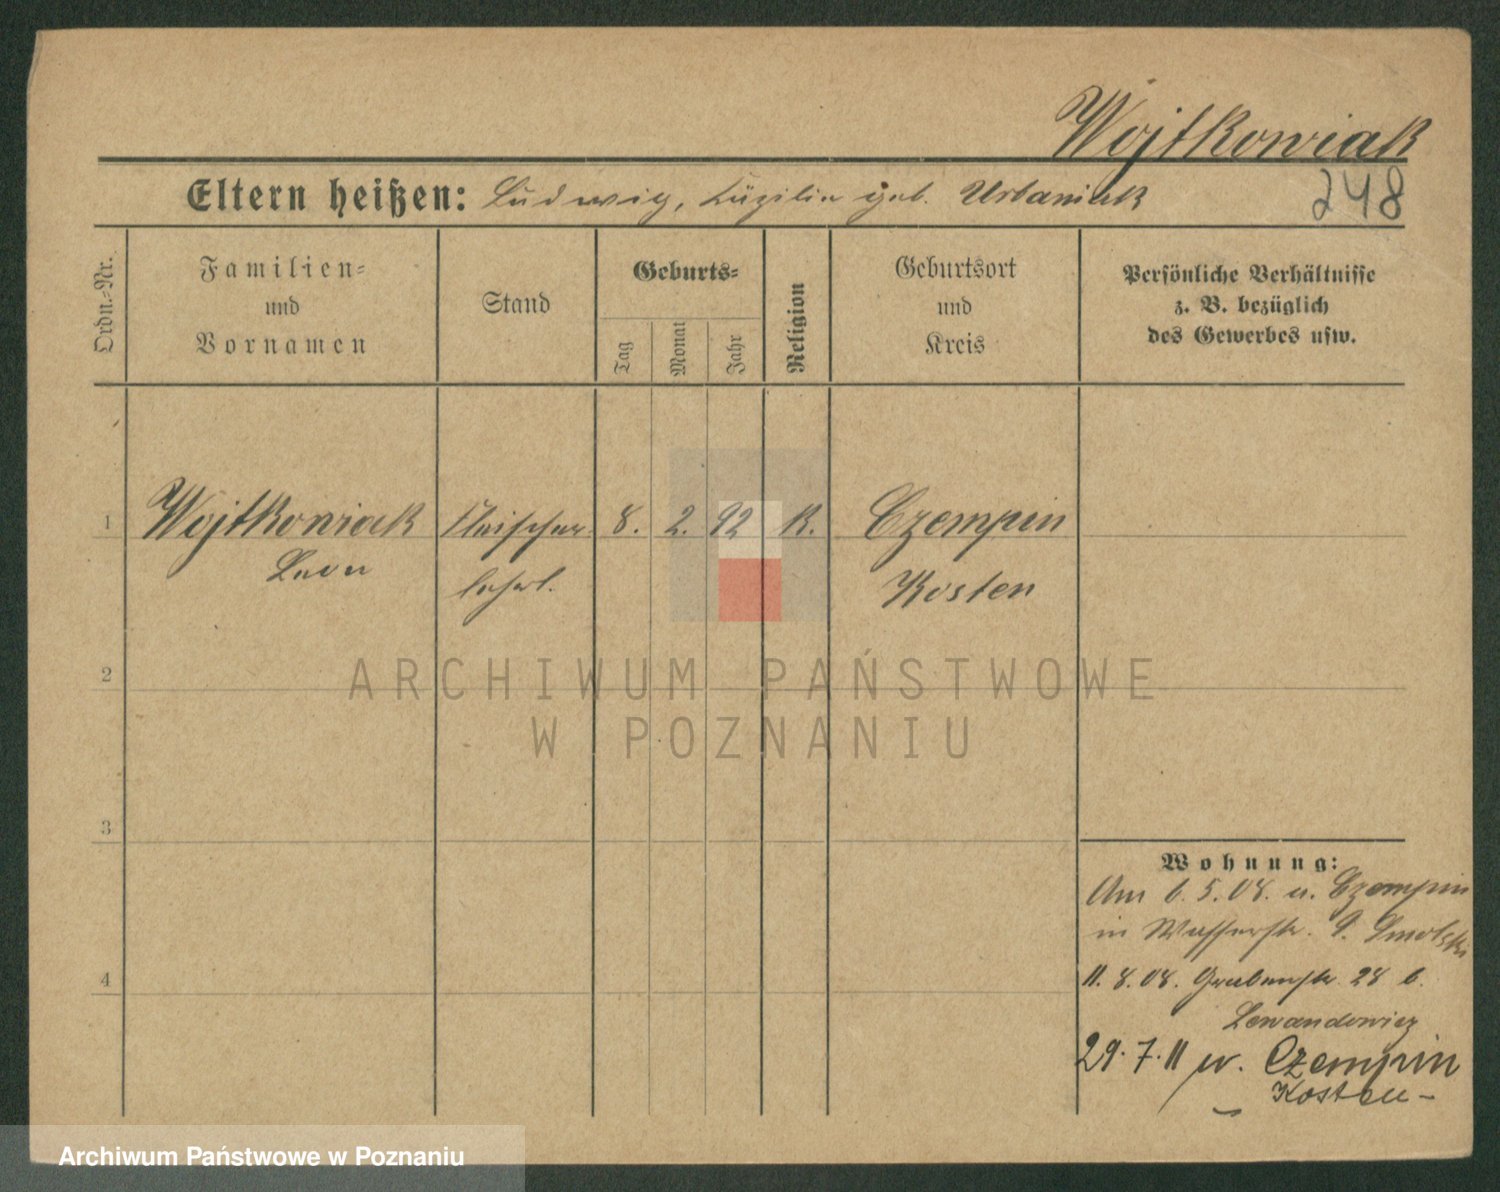 Wojtkowiak
Eltern heißen: Ludwig, Cäzilia geb. Urbaniak
248
Ordn.-Nr.
Familien-
und
Vornamen
Stand
Geburts-
Tag
Monat
Jahr
Religion
Geburtsort
und
Kreis
Persönliche Verhältnisse
z. B. bezüglich
des Gewerbes usw.
1 Wojtkowiak Fleischer 8. 2. 92 K. Czempin
Leon lehrl. Kosten
2
3
4
Wohnung:
Am 6.5.08. v. Czempin
in Wasserstr. 9. Smolski
11.8.08. Grabenstr. 28 b.
Lewandowicz
29.7.11 n. Czempin
Kosten -
ARCHIWUM PAŃSTWOWE
W POZNANIU
Archiwum Państwowe w Poznaniu